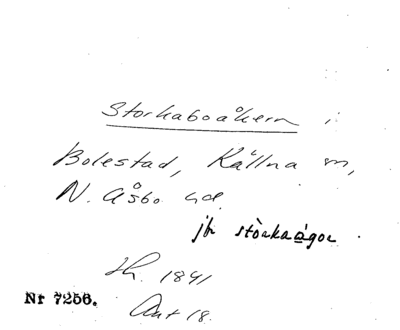 Storkaboåkern i
Bolestad, Källna sn,
N. Åsbo hd.
jfr stòrkaågor
Sk. 1841
Nr 7256.
Akt 18.